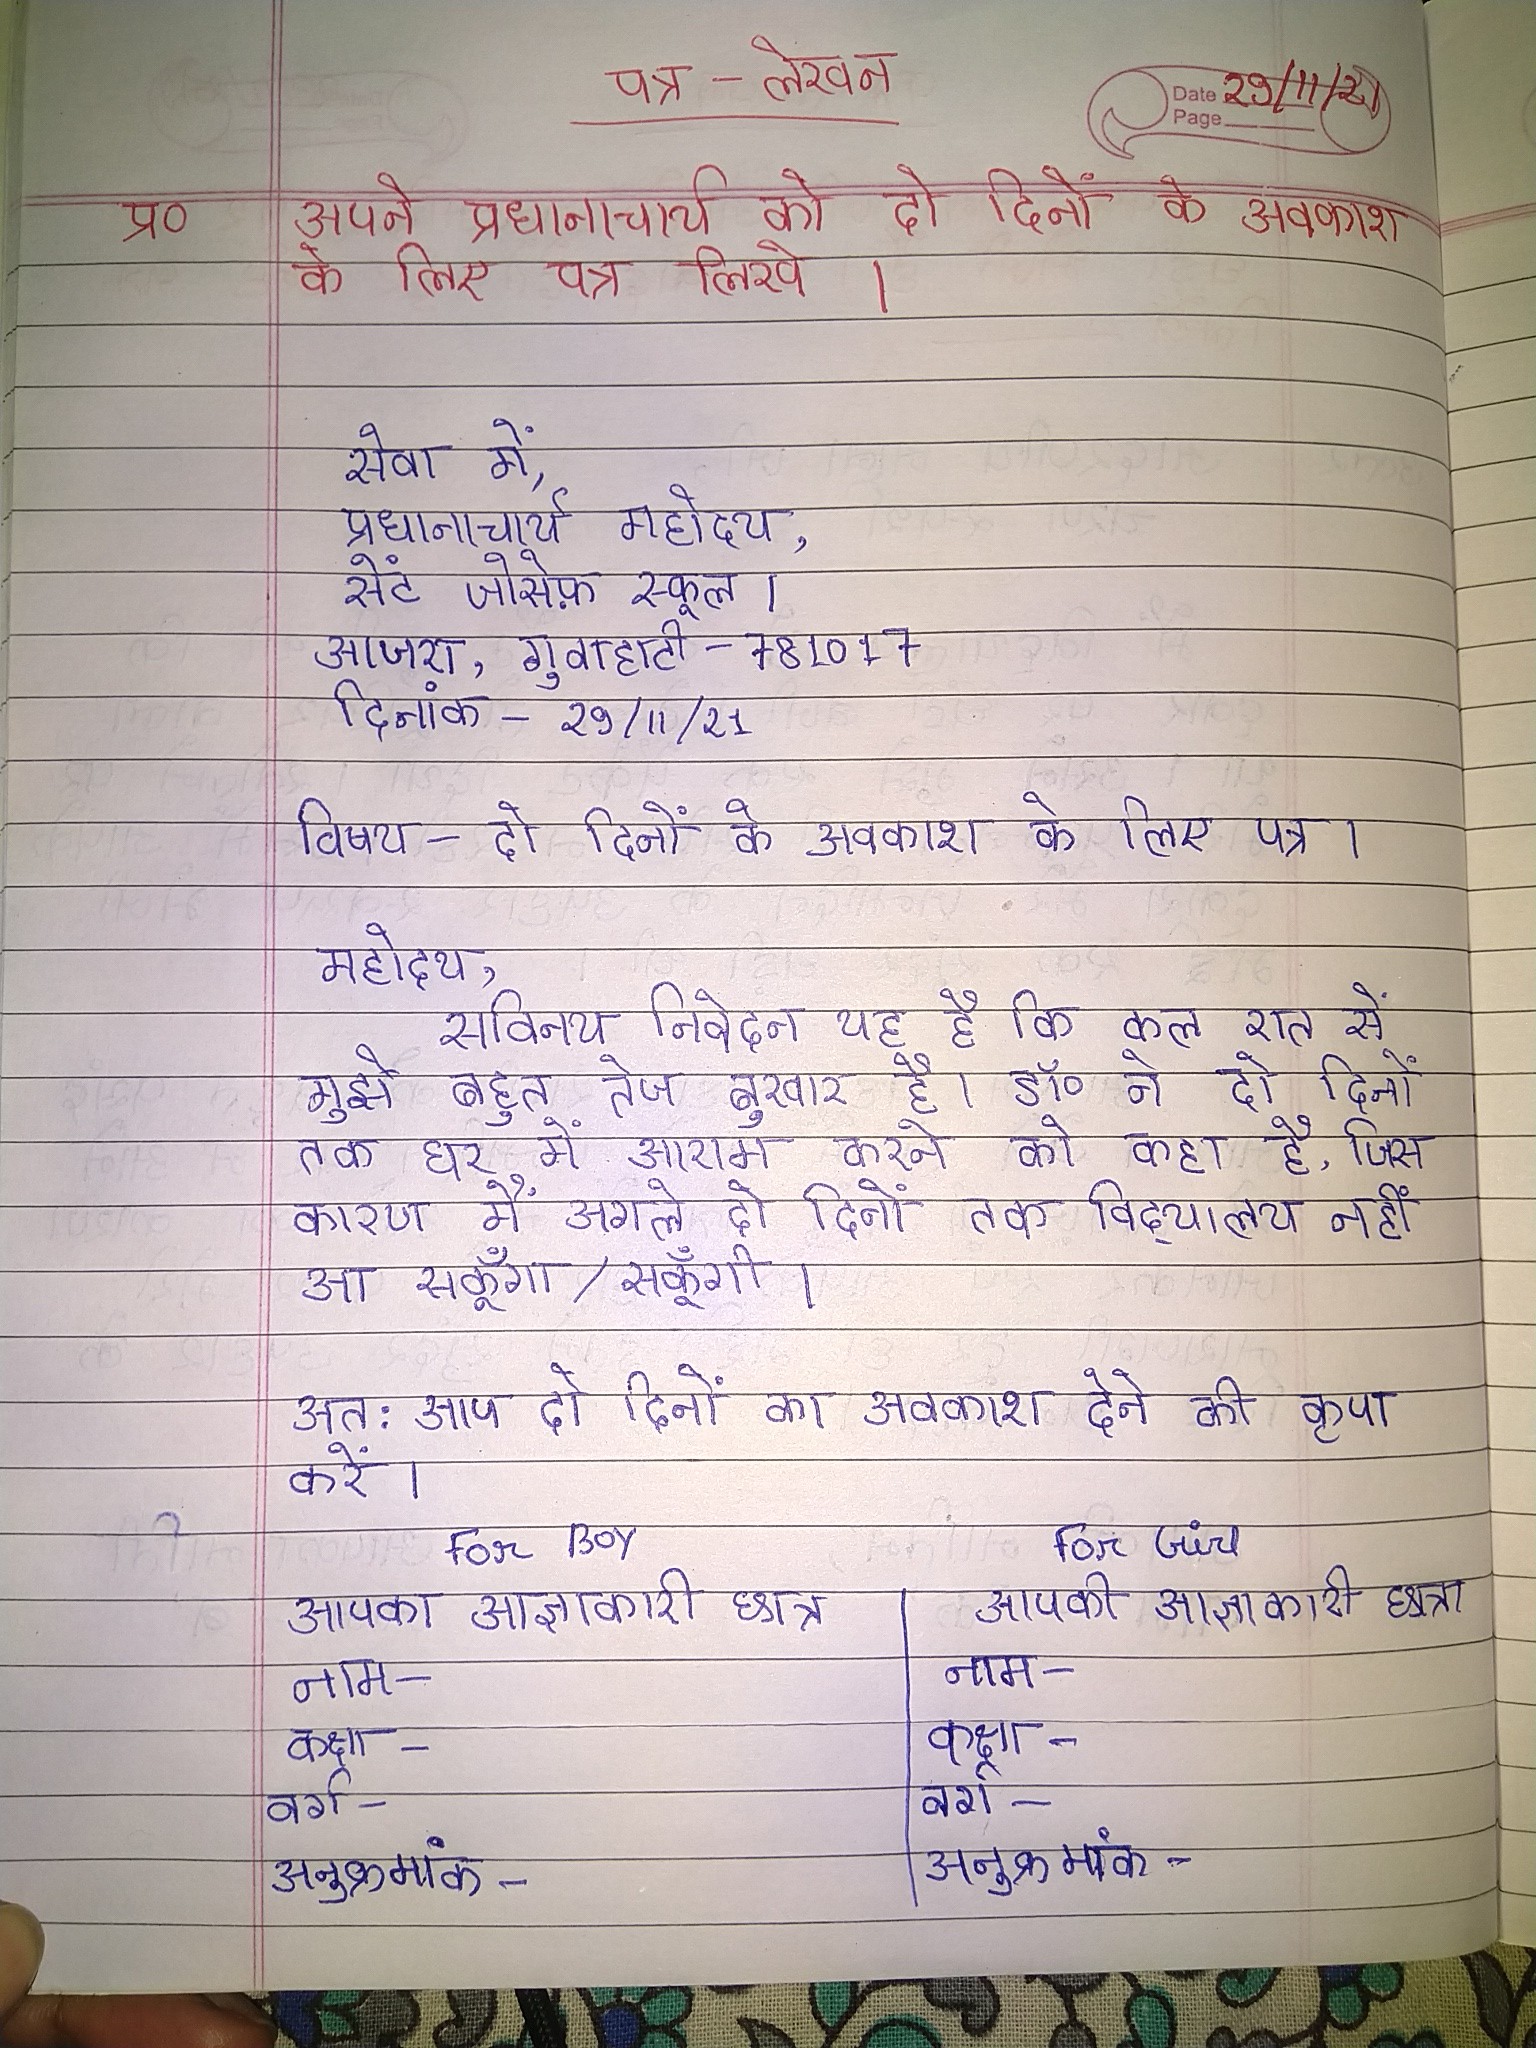 पत्र - लेखन
Date 29/11/21
Page
प्र० अपने प्रधानाचार्य को दो दिनों के अवकाश
के लिए पत्र लिखे ।
सेवा में,
प्रधानाचार्य महोदय,
सेंट जोसेफ़ स्कूल ।
आजरा, गुवाहाटी - 781017
दिनांक - 29/11/21
विषय - दो दिनों के अवकाश के लिए पत्र ।
महोदय,
सविनय निवेदन यह है कि कल रात सें
मुझे बहुत तेज बुखार है । डॉ० ने दो दिनों
तक घर में आराम करने को कहा है, जिस
कारण मैं अगले दो दिनों तक विद्यालय नहीं
आ सकूँगा / सकूँगी ।
अत: आप दो दिनों का अवकाश देने की कृपा
करें ।
For Boy For Girl
आपका आज्ञाकारी छात्र आपकी आज्ञाकारी छात्रा
नाम - नाम -
कक्षा - कक्षा -
वर्ग - वर्ग -
अनुक्रमांक - अनुक्रमांक -